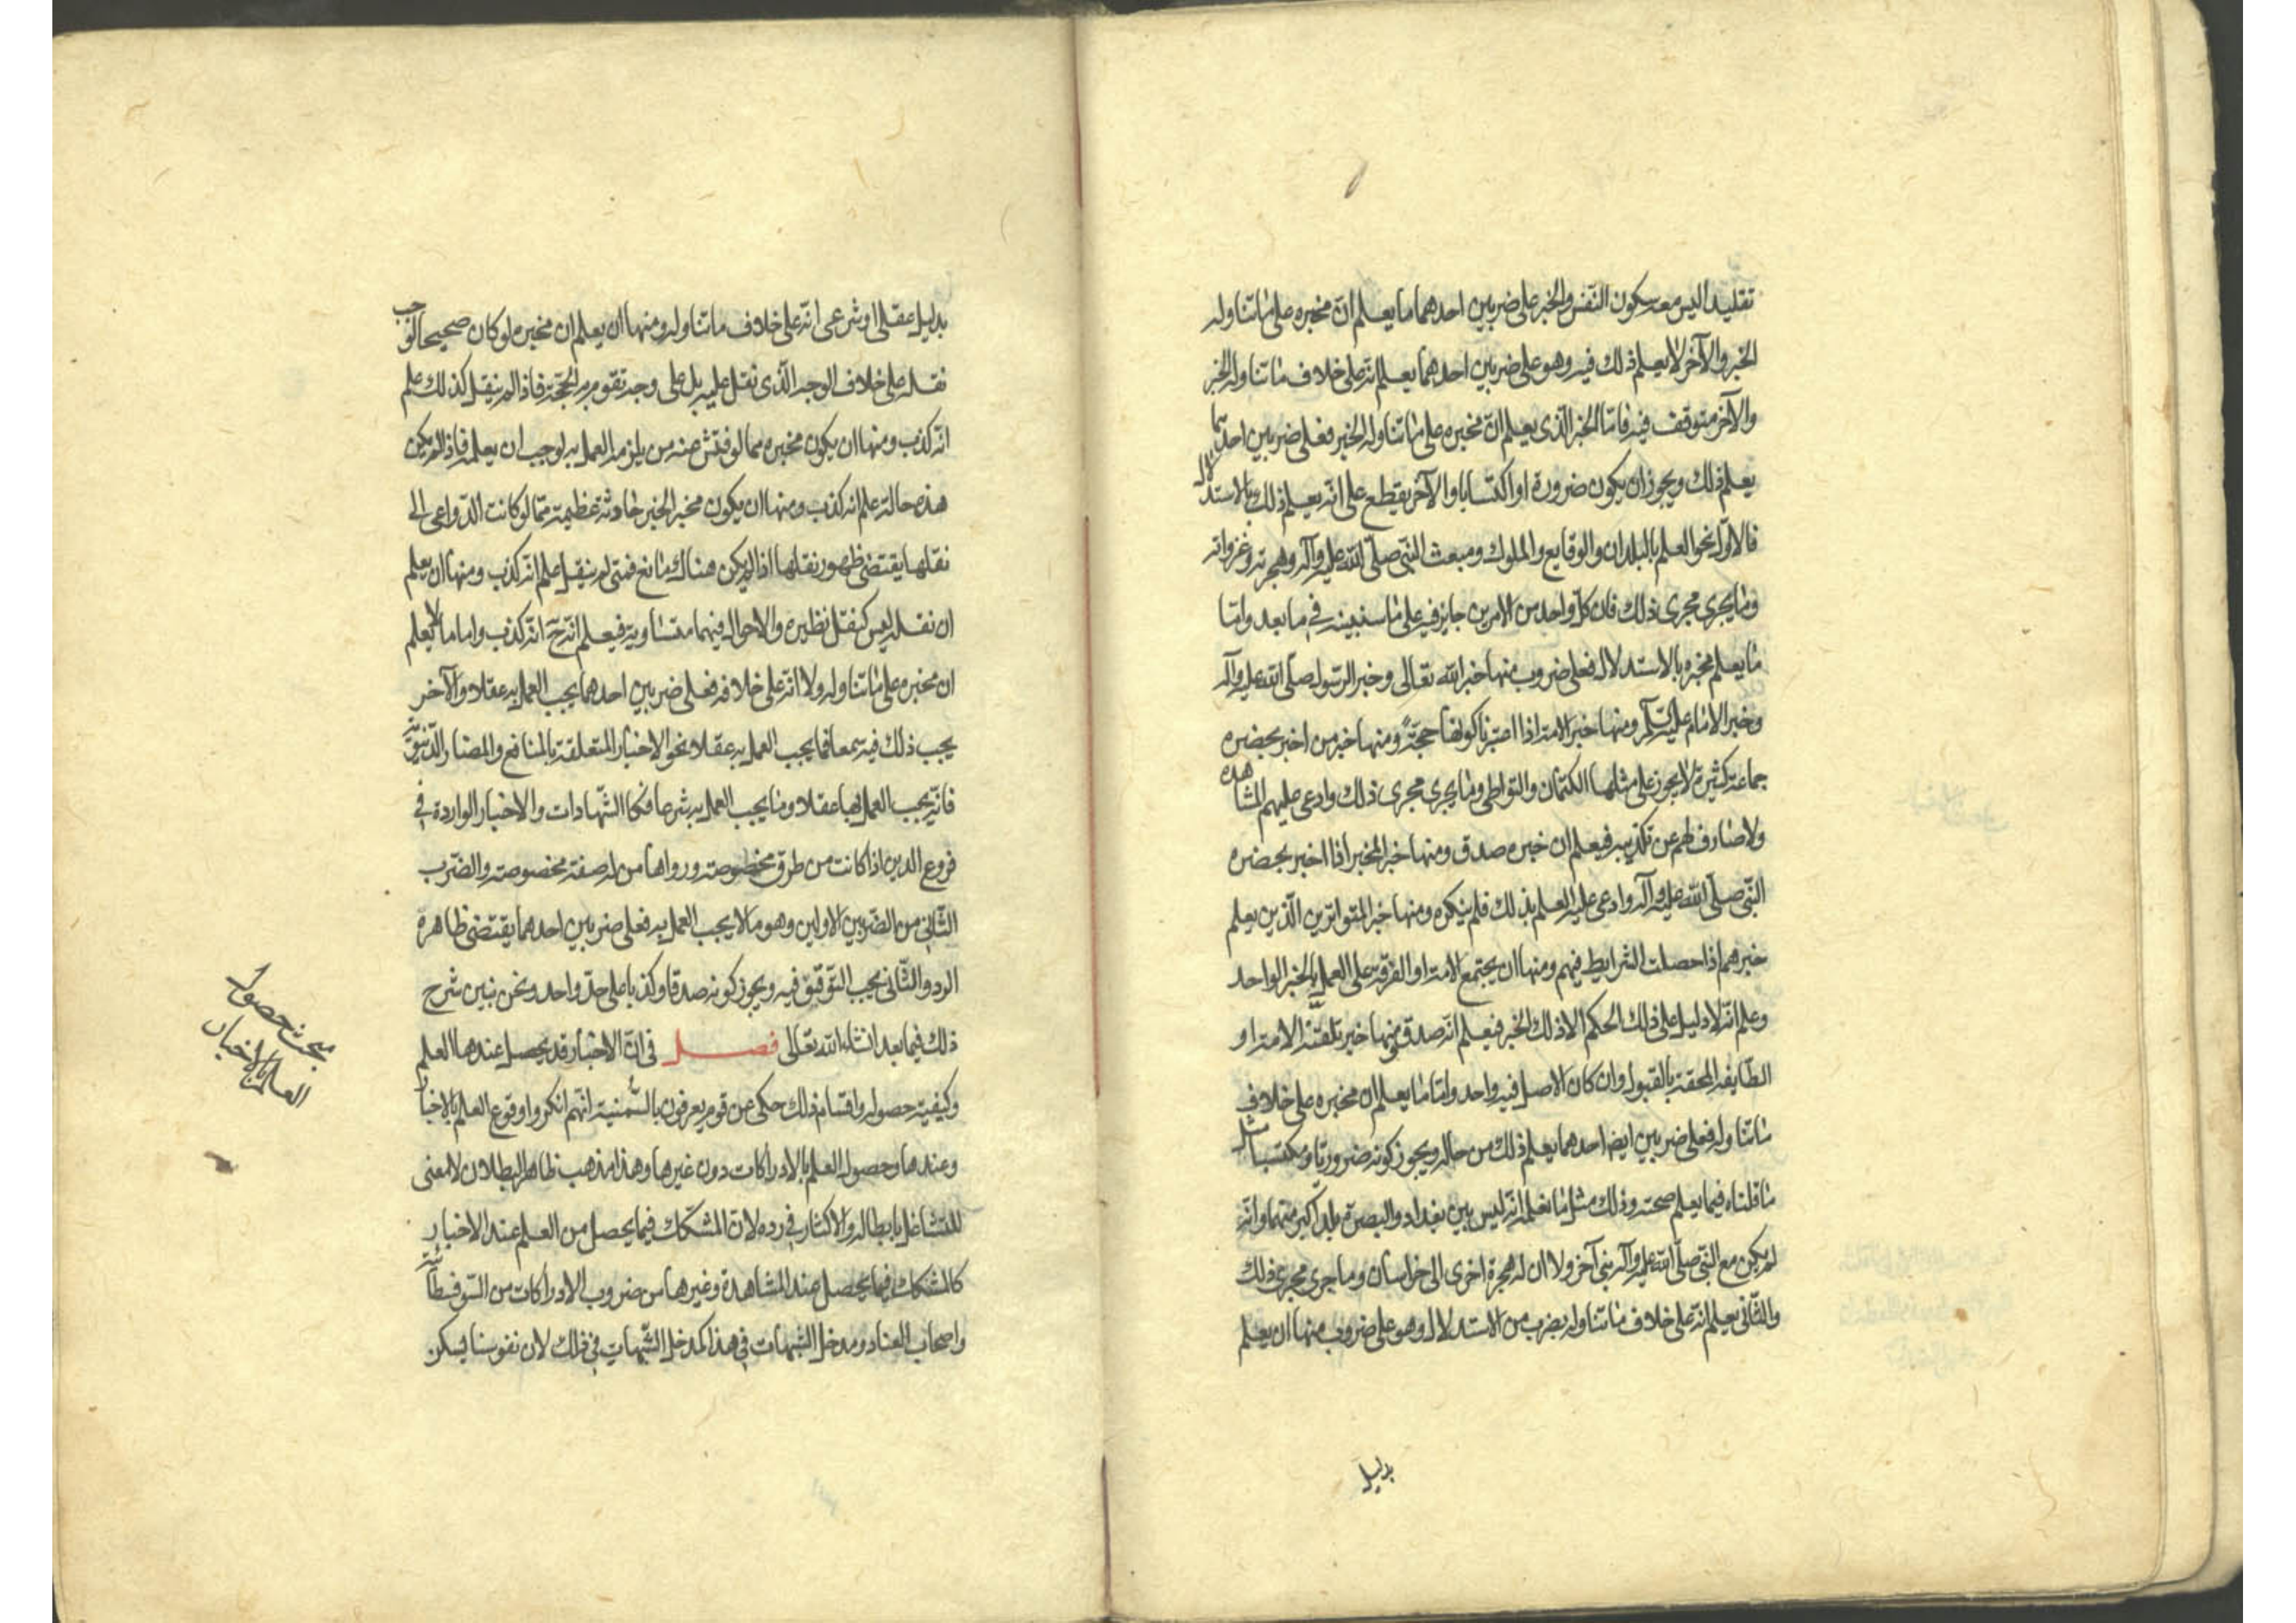 تقليدا ليس معه سكون النفس والخبر على ضربين احدهما ما يعلم ان مخبره على ما تناوله
الخبر والآخر لا يعلم ذلك فيه وهو على ضربين احدهما يعلم انه على خلاف ما تناوله الخبر
والآخر متوقف فيه فاما الخبر الذى يعلم ان مخبره على ما تناوله الخبر فعلى ضربين احدهما
يعلم ذلك ويجوز ان يكون ضرورة او اكتسابا والآخر يقطع على انه يعلم ذلك بالاستدلال
فالاول نحو العلم بالبلدان والوقايع والملوك ومبعث النبى صلى الله عليه وآله وهجرته وغزواته
وما يجرى مجرى ذلك فان كل واحد من الامرين جايز فيه على ما سنبينه فى ما بعد واما
ما يعلم مخبره بالاستدلال فعلى ضروب منها خبر الله تعالى وخبر الرسول صلى الله عليه وآله
وخبر الامام عليه السلم ومنها خبر الامة اذا اعتبرنا كونها حجة ومنها خبر من اخبر بحضرة
جماعة كثيرة لا يجوز على مثلها الكتمان والتواطى وما يجرى مجرى ذلك وادعى عليهم المشاهدة
ولا صارف لهم عن تكذيبه فيعلم ان خبره صدق ومنها خبر المخبر اذا اخبر بحضرة
النبى صلى الله عليه وآله وادعى عليه العلم بذلك فلم ينكره ومنها خبر المتواترين الذين يعلم
خبرهم اذا حصلت الشرايط فيهم ومنها ان يجتمع الامة او الفرقة على العمل بالخبر الواحد
وعلم انه لا دليل على ذلك الحكم الا ذلك الخبر فيعلم انه صدق ومنها خبر تلقته الامة او
الطايفة المحقة بالقبول وان كان الاصل فيه واحد واما ما يعلم ان مخبره على خلاف
ما تناوله فعلى ضربين ايضا احدهما يعلم ذلك من حاله ويجوز كونه ضروريا ومكتسبا مثل
ما قلناه فيما يعلم صحته وذلك مثل ما نعلم انه ليس بين بغداد والبصرة بلد اكبر منهما وانه
لم يكن مع النبى صلى الله عليه وآله نبى آخر ولا ان له هجرة اخرى الى خراسان وما جرى مجرى ذلك
والثانى يعلم انه على خلاف ما تناوله بضرب من الاستدلال وهو على ضروب منها ان يعلم
بدليل
بدليل عقلى او شرعى انه على خلاف ما تناوله ومنها ان يعلم ان مخبره لو كان صحيحا لوجب
نقله على خلاف الوجه الذى نقل عليه بل على وجه تقوم به الحجة فاذا لم ينقل كذلك علم
انه كذب ومنها ان يكون مخبره مما لو فتش عنه من يلزمه العمل به لوجب ان يعلمه فاذا لم يكن
هذه حالته علم انه كذب ومنها ان يكون مخبر الخبر حادثة عظيمة مما لو كانت الدواعى الى
نقلها يقتضى ظهور نقلها اذا لم يكن هناك مانع فمتى لم ينقل علم انه كذب ومنها ان يعلم
ان نقله ليس كنقل نظيره والاحوال فيهما متساوية فيعلم انه ح انه كذب واما ما لا يعلم
ان مخبره على ما تناوله ولا انه على خلافه فعلى ضربين احدهما يجب العمل به عقلا والآخر
يجب ذلك فيه سمعا فما يجب العمل به عقلا نحو الاخبار المتعلقة بالمنافع والمضار الدنيوية
فانه يجب العمل بها عقلا وما يجب العمل به شرعا فكا الشهادات والاخبار الواردة فى
فروع الدين اذا كانت من طرق مخصوصة ورواها من له صفة مخصوصة والضرب
الثانى من الضربين الاولين وهو ما لا يجب العمل به فعلى ضربين احدهما يقتضى ظاهره
الرد والثانى يجب التوقف فيه ويجوز كونه صدقا وكذبا على حد واحد ونحن نبين شرح
ذلك فيما بعد ان شاء الله تعالى فصل فى ان الاخبار قد يحصل عندها العلم
وكيفية حصوله واقسام ذلك حكى عن قوم يعرفون بالسمنية انهم انكروا وقوع العلم بالاخبار
وعندها وحصول العلم بالادراكات دون غيرها وهذا مذهب ظاهر البطلان لا معنى
للتشاغل بابطاله والاكثار فى رده لان المشكك فيما يحصل من العلم عند الاخبار
كالمشكك فيما يحصل عند المشاهدة وغيرها من ضروب الادراكات من السوفسطائية
واصحاب العناد ومدخل الشبهات فى هذا كمدخل الشبهات فى ذلك لان نفوسنا يسكن
مبحث حصول
العلم بالاخبار